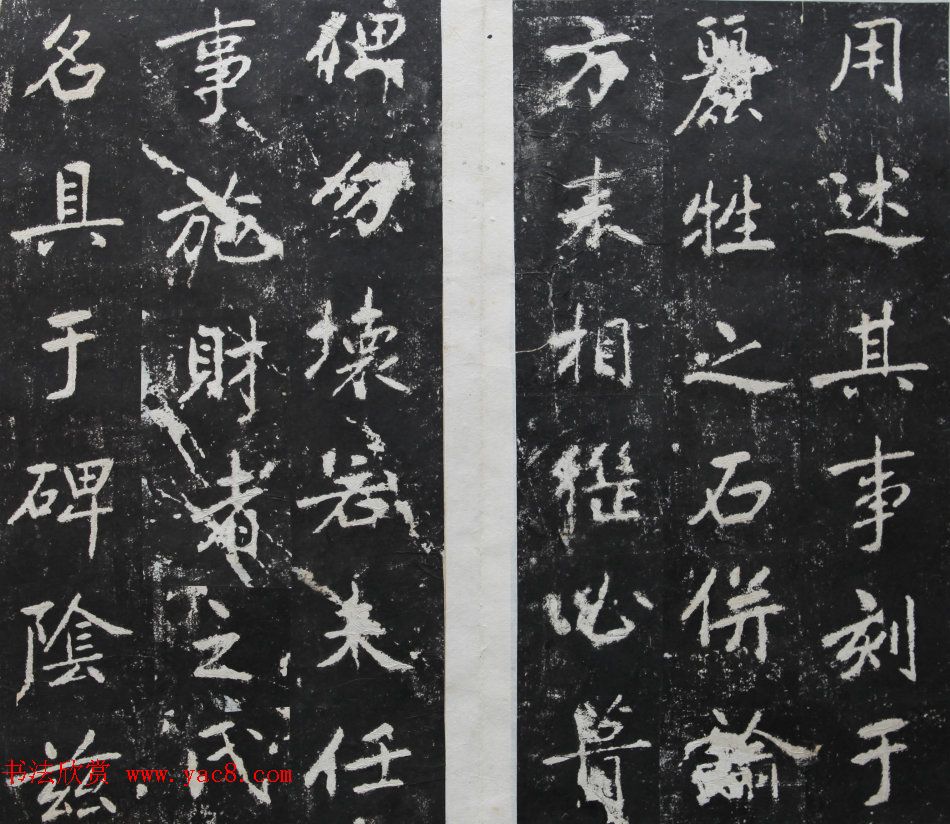 用述其事刻于
麗牲之石併諭
方来相継必
碑勿壞若未任
事施財者之氏
名具于碑陰茲
书法欣赏 www.yac8.com